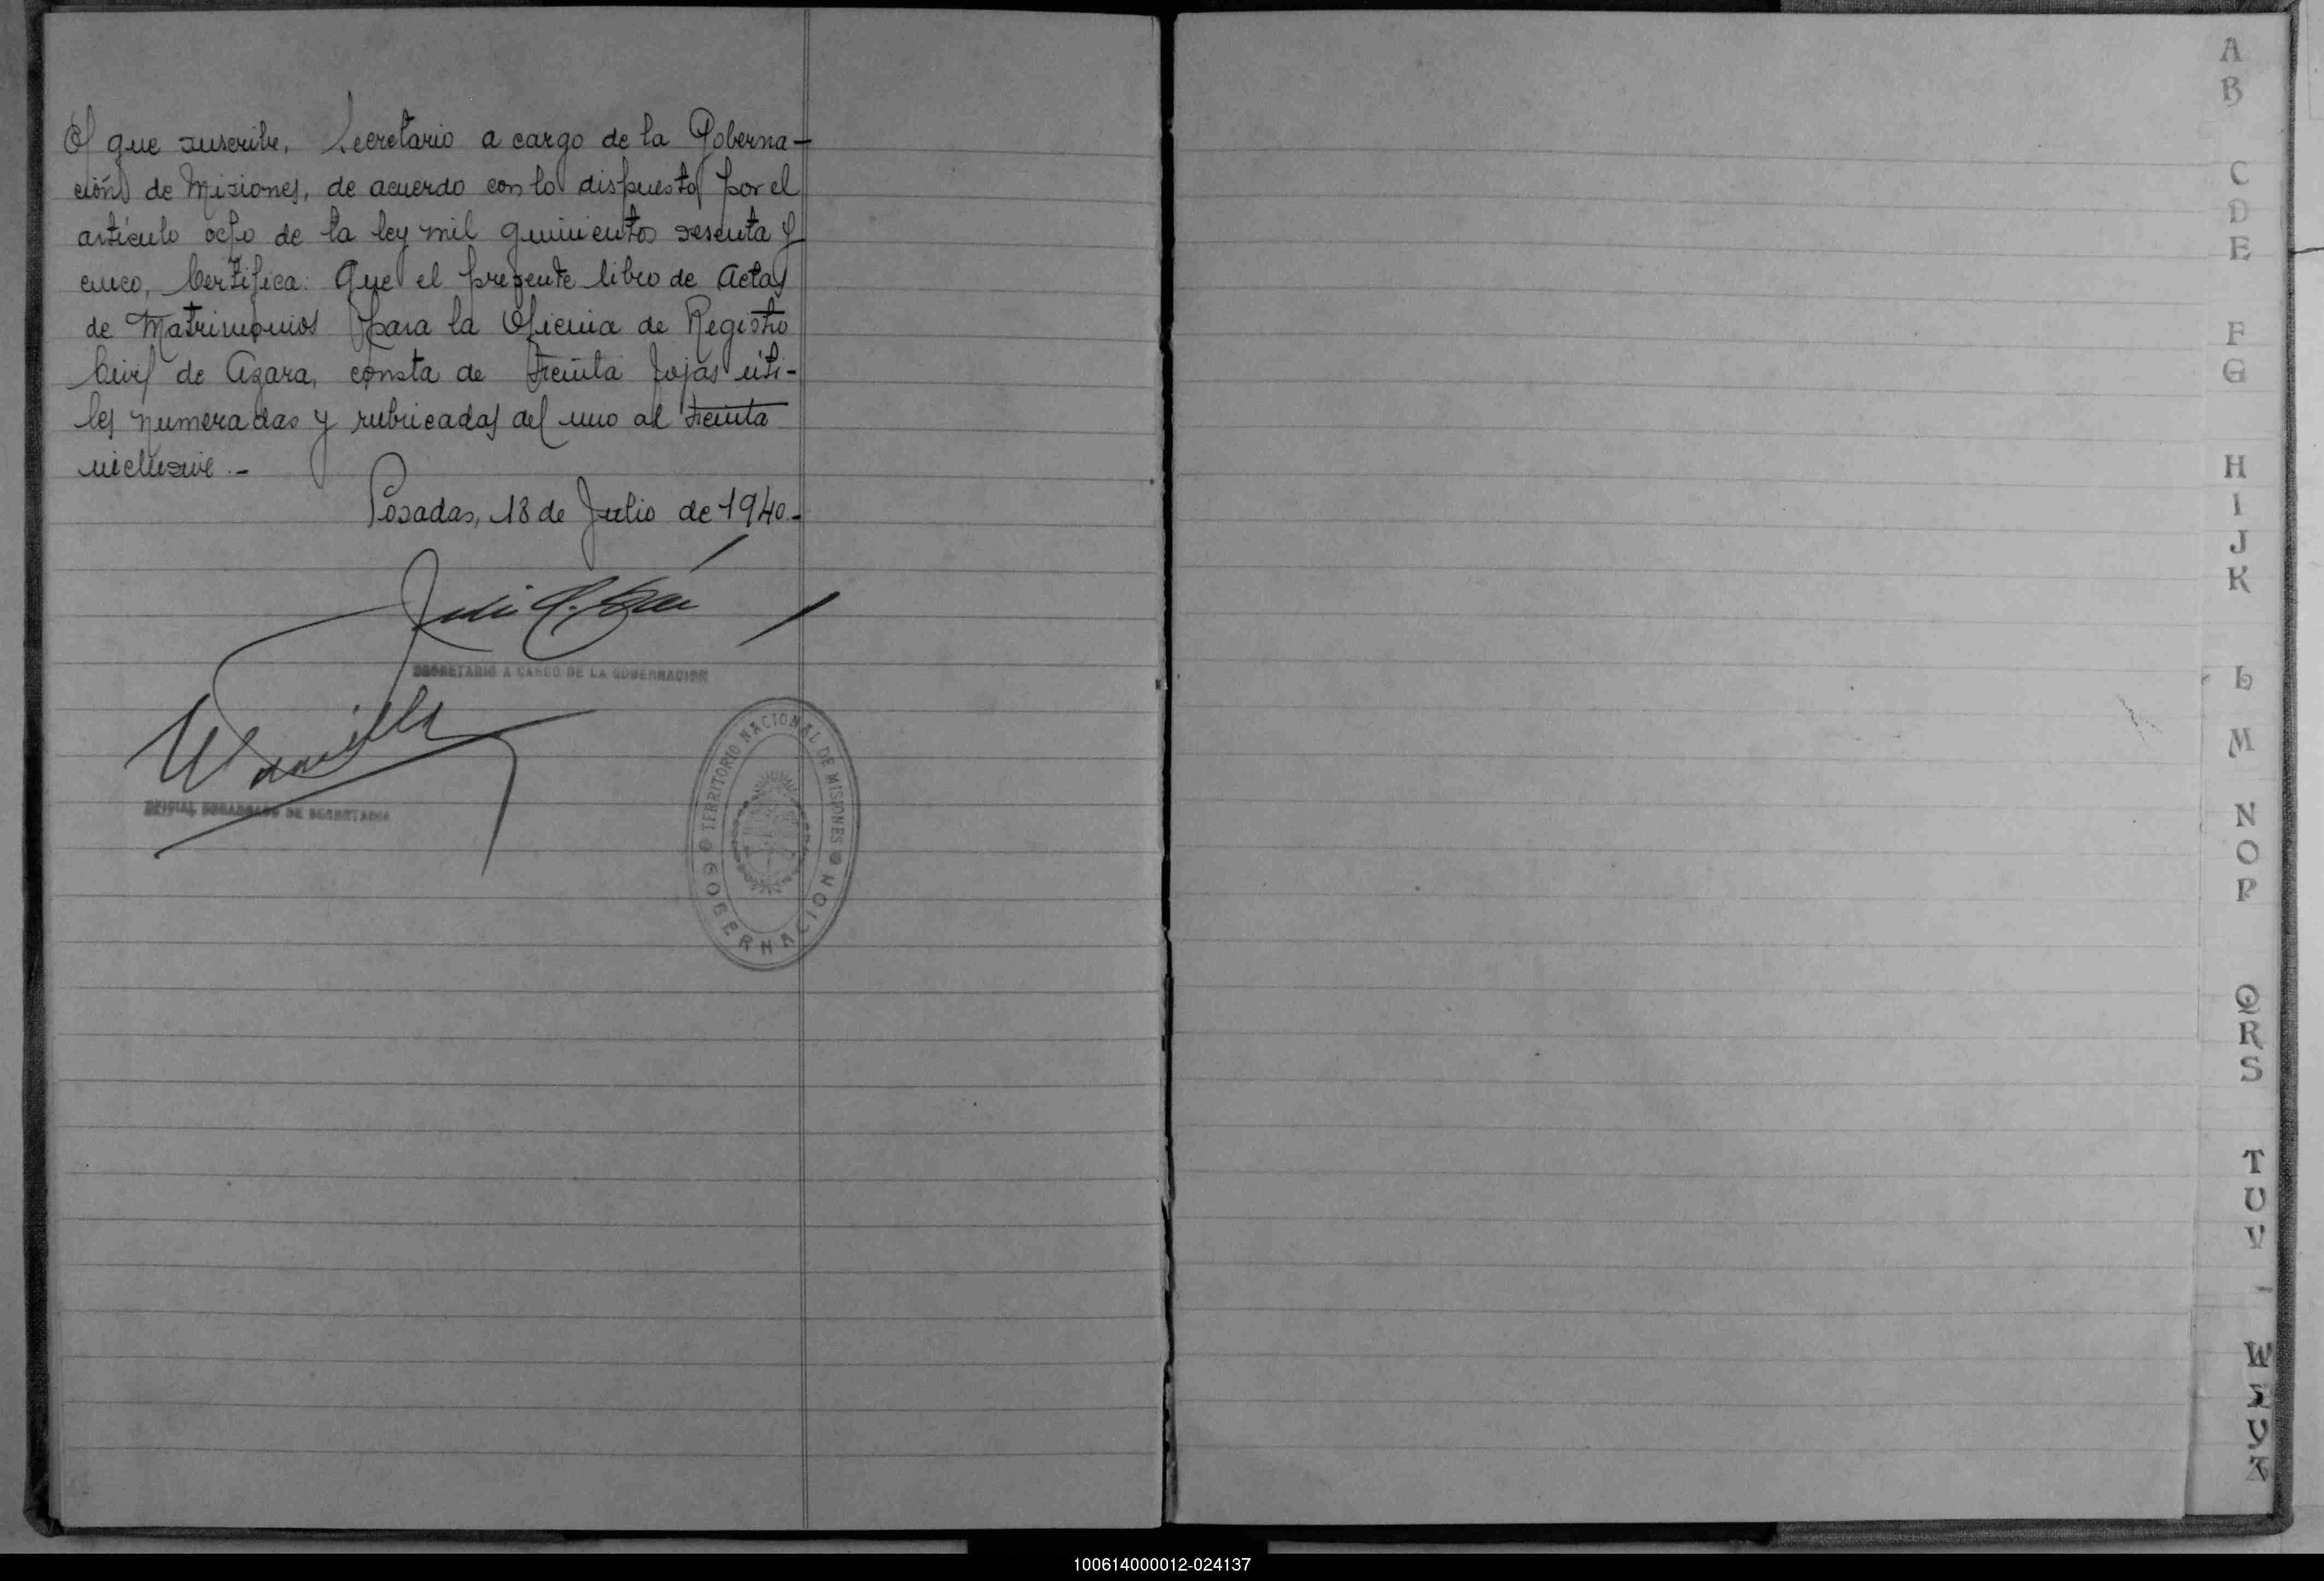 El que suscribe, Secretario a cargo de la Goberna-
ción de Misiones, de acuerdo con lo dispuesto por el
artículo ocho de la ley mil quinientos sesenta y
cinco, Certifica: Que el presente libro de Actas
de Matrimonios para la Oficina de Registro
Civil de Azara, consta de treinta fojas úti-
les numeradas y rubricadas del uno al treinta
inclusive.-
Posadas, 18 de Julio de 1940.-
SECRETARIO A CARGO DE LA GOBERNACION
OFICIAL ENCARGADO DE SECRETARIA
TERRITORIO NACIONAL DE MISIONES
GOBERNACION
A
B
C
D
E
F
G
H
I
J
K
L
M
N
O
P
Q
R
S
T
U
V
W
X
Y
Z
100614000012-024137